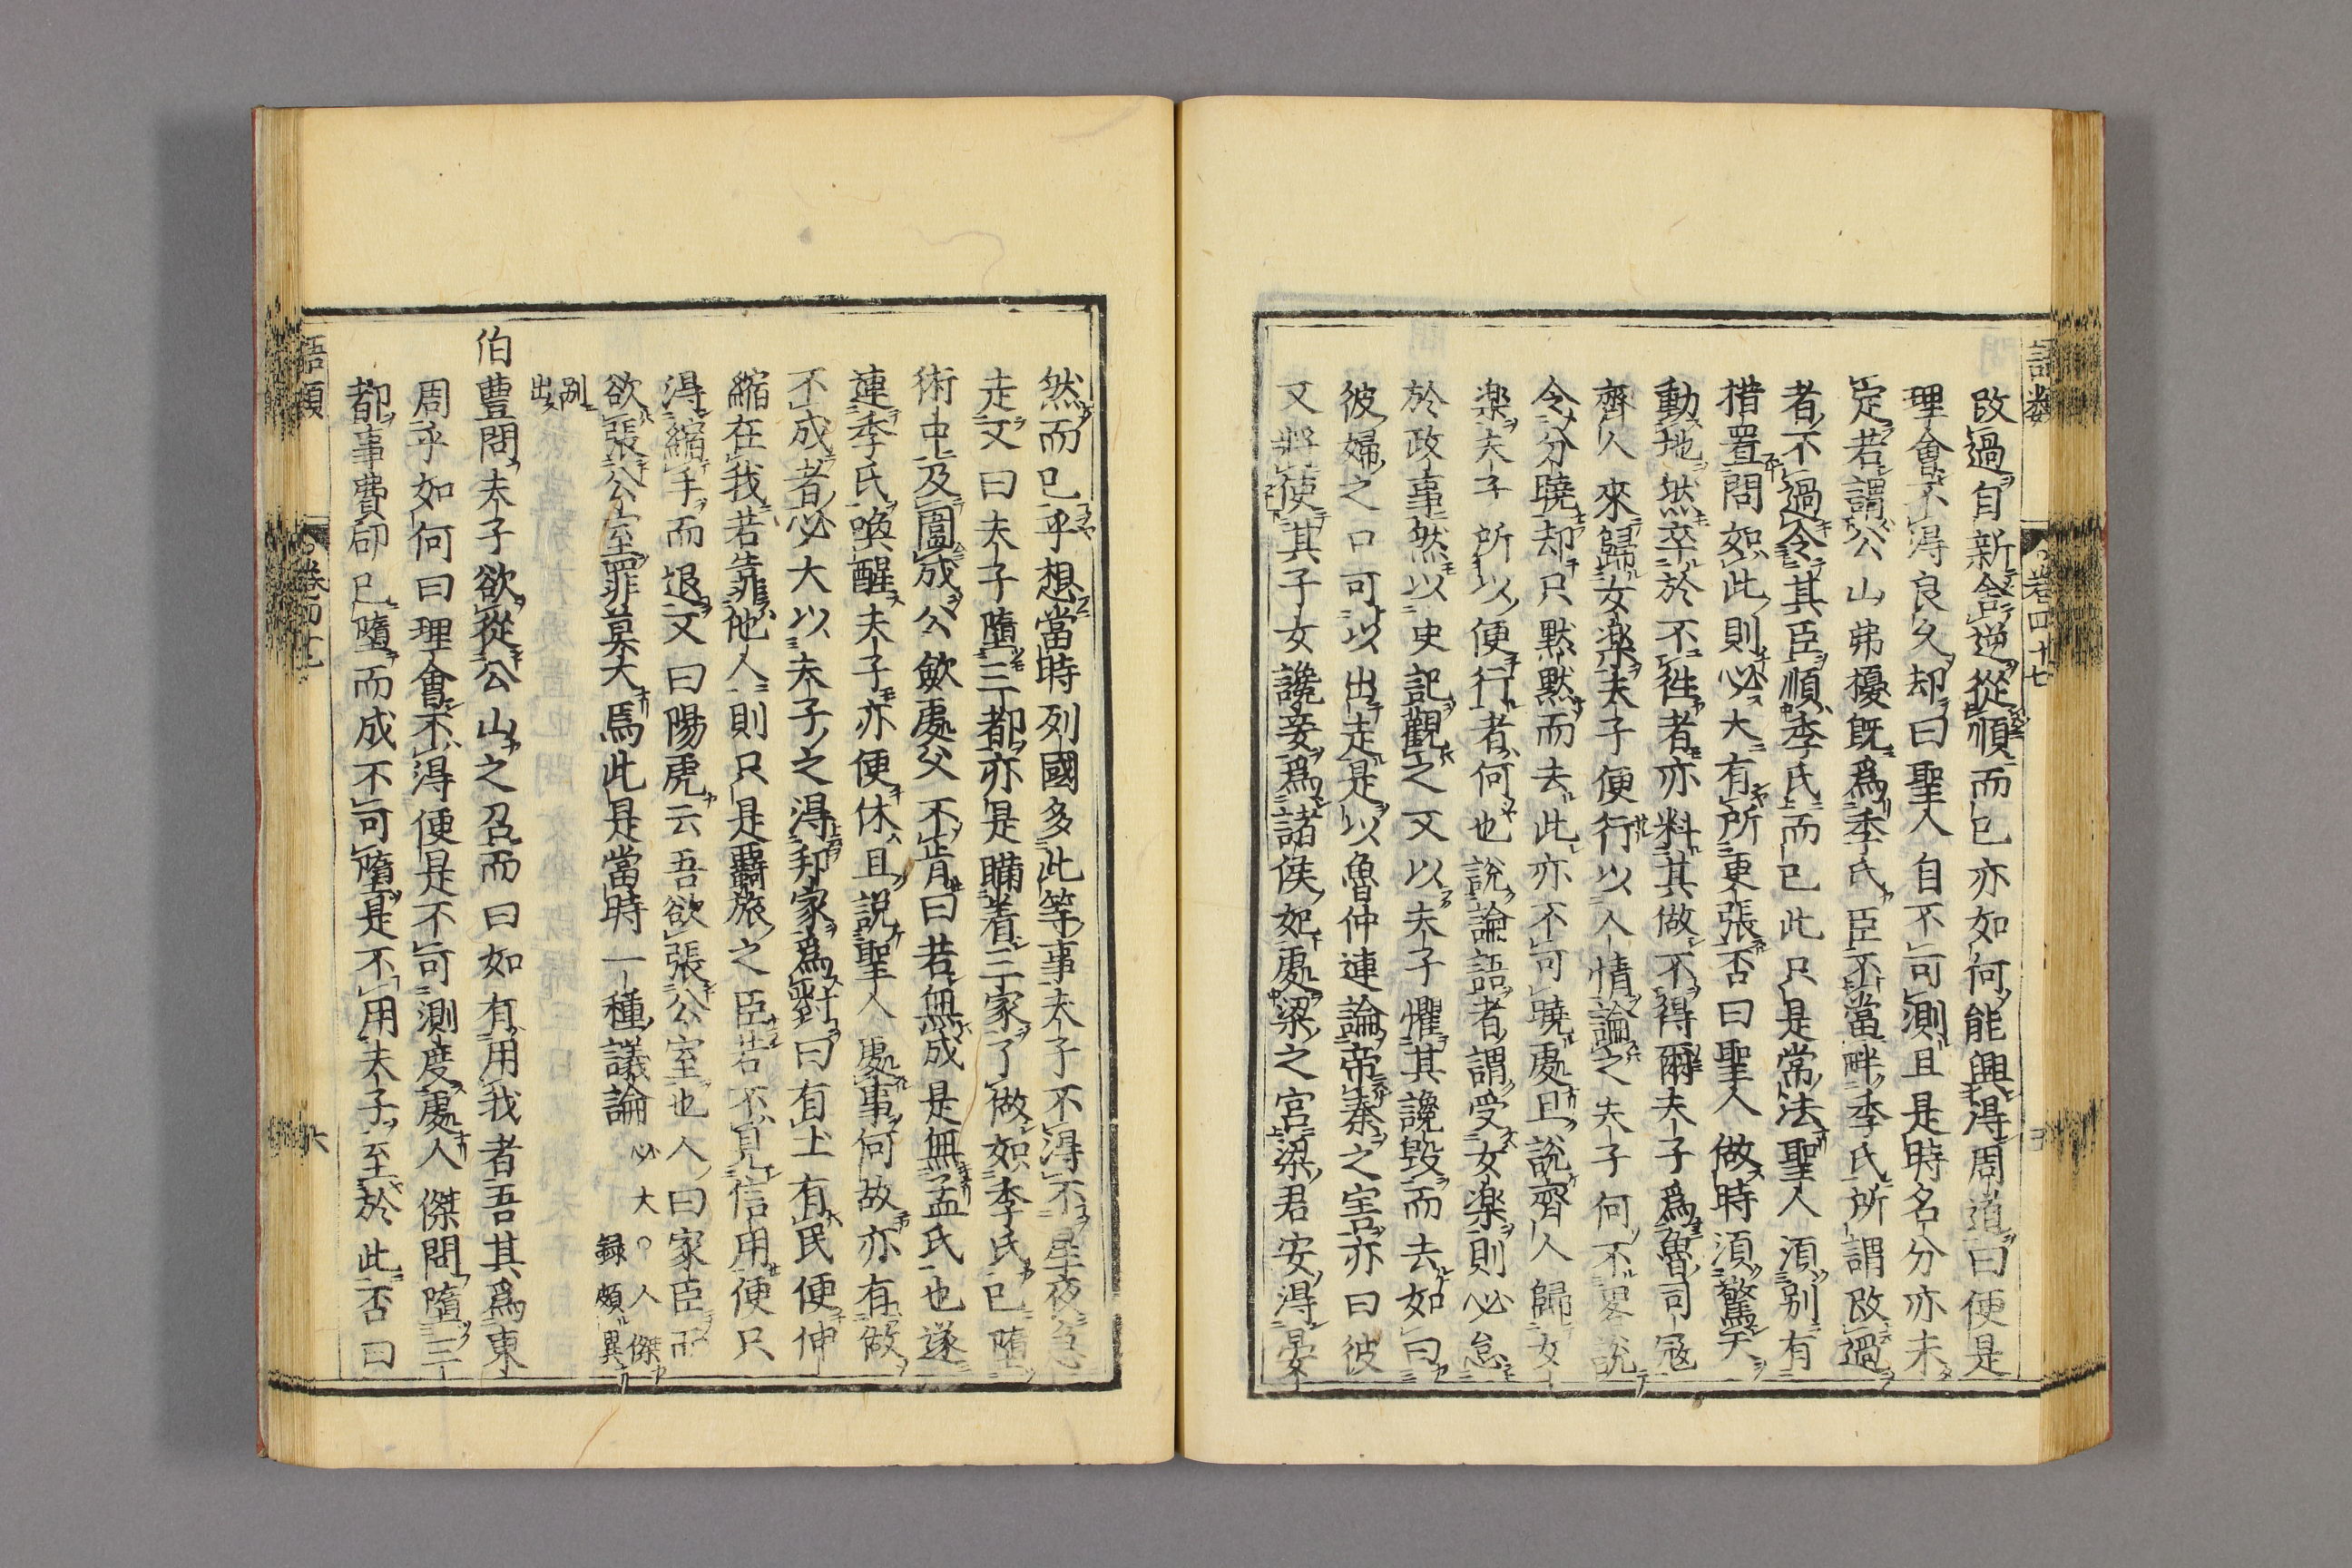 語類　卷四十七
改過自新舍逆從順而已亦如何能興得周道曰便是
理會不得良久却曰聖人自不可測且是時名分亦未
定若謂公山弗擾旣爲季氏臣不當畔季氏所謂改過
者不過令其臣順季氏而已此只是常法聖人須別有
措置問如此則必大有所更張否曰聖人做時須驚天
動地然卒於不徃者亦料其做不得爾夫子爲魯司冦
齊人來歸女楽夫子便行以人情論之夫子何不畧說
令分曉却只默默而去此亦不可曉處且說齊人歸女
楽夫子所以便行者何也說論語者謂受女楽則必怠
於政事然以史記觀之又以夫子懼其讒毀而去如曰
彼婦之口可以出走是以魯仲連論帝秦之害亦曰彼
又將使其子女讒妾爲諸侯妃處梁之宮梁君安得晏
然而已乎想當時列國多此等事夫子不得不星夜急
走又曰夫子墮三都亦是瞞着三家了做如季氏已墮
術中及圍成公歛處父不肯曰若無成是無孟氏也遂
連季氏喚醒夫子亦便休且說聖人處事何故亦有做
不成者必大以夫子之得邦家爲對曰有土有民便伸
縮在我若靠他人則只是羇旅之臣若不見信用便只
得縮手而退又曰陽虎云吾欲張公室也人曰家臣而
欲張公室罪莫大焉此是當時一種議論必大○人傑
錄頗異
別
出
伯豊問夫子欲從公山之召而曰如有用我者吾其爲東
周乎如何曰理會不得便是不可測度處人傑問墮三
都事費郈已墮而成不可墮是不用夫子至於此否曰
語類　卷四十七　六